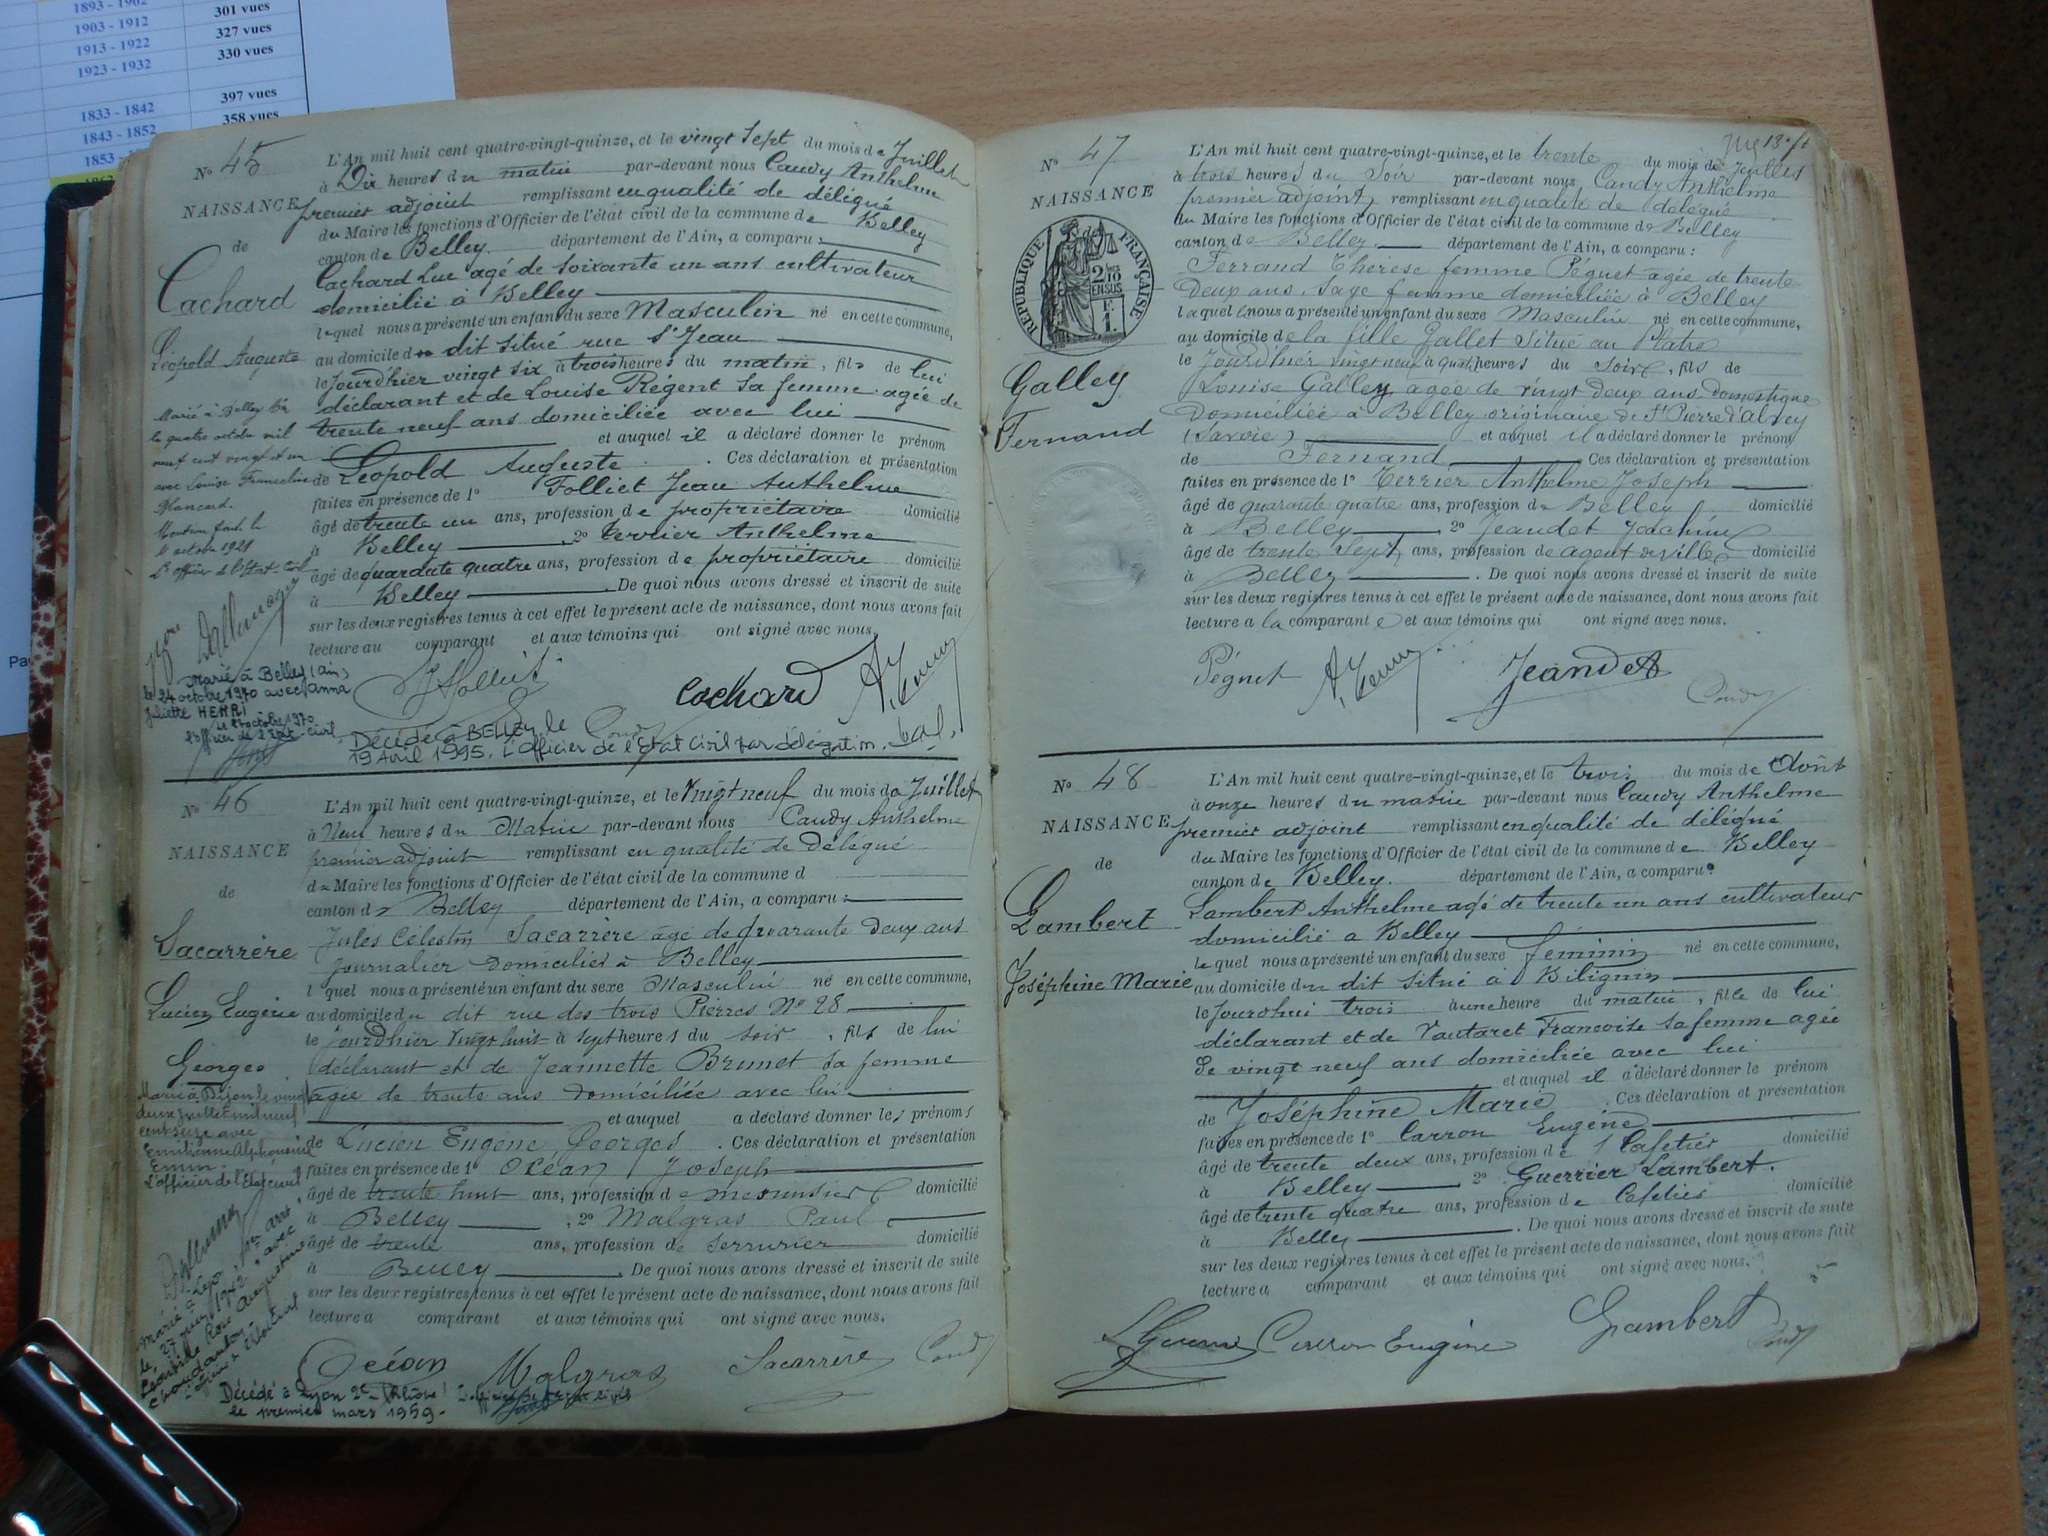 1893 - 1902
1903 - 1912 301 vues
1913 - 1922 327 vues
1923 - 1932 330 vues
1833 - 1842 397 vues
1843 - 1852 358 vues
1853 -
Pa
N° 45
NAISSANCE
de
Cachard
Léopold Auguste
L'An mil huit cent quatre-vingt-quinze, et le vingt sept du mois de Juillet
à Dix heures du matin par-devant nous Caudy Anthelme
premier adjoint remplissant en qualité de délégué
du Maire les fonctions d'Officier de l'état civil de la commune de Belley
canton de Belley département de l'Ain, a comparu :
Cachard Luc agé de soixante un ans cultivateur
domicilié à Belley
lequel nous a présenté un enfant du sexe Masculin né en cette commune,
au domicile du dit situé rue St Jean
le jourd'hier vingt six à trois heures du matin, fils de lui
déclarant et de Louise Régent sa femme agée de
trente neuf ans domiciliée avec lui
et auquel il a déclaré donner le prénom
de Léopold Auguste. Ces déclaration et présentation
faites en présence de 1° Folliet Jean Anthelme
âgé de trente un ans, profession de propriétaire domicilié
à Belley, 2° Terrier Anthelme
âgé de quarante quatre ans, profession de propriétaire domicilié
à Belley. De quoi nous avons dressé et inscrit de suite
sur les deux registres tenus à cet effet le présent acte de naissance, dont nous avons fait
lecture au comparant et aux témoins qui ont signé avec nous.
Marié à Belley
le quatre octobre mil
neuf cent vingt et un
avec Louise Franceline
Blancard.
Mention faite le
octobre 1921
L'officier de l'Etat-civil
Marié à Belley (Ain)
le 24 octobre 1970 avec Anna
Juliette HENRI
le 27 octobre 1970
l'officier de l'Etat-civil
Cachard
Décédé à BELLEY le
19 Avril 1995. L'Officier de l'Etat Civil par délégation.
N° 46
NAISSANCE
de
Sacarrère
Lucien Eugène
Georges
L'An mil huit cent quatre-vingt-quinze, et le Vingt neuf du mois de Juillet
à Neuf heures du Matin par-devant nous Caudy Anthelme
premier adjoint remplissant en qualité de Délégué
du Maire les fonctions d'Officier de l'état civil de la commune d
canton de Belley département de l'Ain, a comparu :
Jules Célestin Sacarrère âgé de quarante deux ans
journalier domicilié à Belley
l quel nous a présenté un enfant du sexe Masculin né en cette commune,
au domicile du dit rue des trois Pierres N° 28
le jourd'hier vingt huit à sept heures du soir, fils de lui
déclarant et de Jeannette Brunet sa femme
âgée de trente ans domiciliée avec lui
et auquel a déclaré donner les prénoms
de Lucien Eugène Georges. Ces déclaration et présentation
faites en présence de 1° Océan Joseph
âgé de trente huit ans, profession de menuisier domicilié
à Belley, 2° Malgras Paul
âgé de trente ans, profession de serrurier domicilié
à Belley. De quoi nous avons dressé et inscrit de suite
sur les deux registres tenus à cet effet le présent acte de naissance, dont nous avons fait
lecture a comparant et aux témoins qui ont signé avec nous.
Marié à Dijon le vingt
deux juillet mil neuf
cent seize avec
Emilienne Alphonsine
L'officier de l'Etat civil
Marié à Lyon
le 27 juin 1942 avec
Augustine
Océan Malgras Sacarrère
Décédé à Lyon 2e (Rhône)
le premier mars 1959.
N° 47
NAISSANCE
RÉPUBLIQUE FRANÇAISE
2/10 EN SUS
F. 1.
de
Galley
Fernand
L'An mil huit cent quatre-vingt-quinze, et le trente du mois de Juillet
à trois heures du soir par-devant nous Caudy Anthelme
premier adjoint remplissant en qualité de délégué
du Maire les fonctions d'Officier de l'état civil de la commune de Belley
canton de Belley département de l'Ain, a comparu :
Ferrand Thérèse femme Péguet agée de trente
deux ans, sage femme domiciliée à Belley
laquelle nous a présenté un enfant du sexe Masculin né en cette commune,
au domicile de la fille Gallet situé au Platre
le jourd'hier vingt neuf à quatre heures du soir, fils de
Louise Galley agée de vingt deux ans, domestique
domiciliée à Belley originaire de St Pierre d'alvey
(Savoie) et auquel il a déclaré donner le prénom
de Fernand Ces déclaration et présentation
faites en présence de 1° Terrier Anthelme Joseph
âgé de quarante quatre ans, profession de Belley domicilié
à Belley 2° Jeandet Joachim
âgé de trente sept ans, profession de agent de ville domicilié
à Belley. De quoi nous avons dressé et inscrit de suite
sur les deux registres tenus à cet effet le présent acte de naissance, dont nous avons fait
lecture a la comparante et aux témoins qui ont signé avec nous.
Péguet Jeandet
N° 48
NAISSANCE
de
Lambert
Joséphine Marie
L'An mil huit cent quatre-vingt-quinze, et le trois du mois de Août
à onze heures du matin par-devant nous Caudy Anthelme
premier adjoint remplissant en qualité de délégué
du Maire les fonctions d'Officier de l'état civil de la commune de Belley
canton de Belley. département de l'Ain, a comparu :
Lambert Anthelme agé de trente un ans cultivateur
domicilié a Belley
lequel nous a présenté un enfant du sexe féminin né en cette commune,
au domicile du dit situé à Bilignin
le jourd'hui trois à une heure du matin, fille de lui
déclarant et de Vautaret Francoise sa femme agée
de vingt neuf ans domiciliée avec lui
et auquel il a déclaré donner le prénom
de Joséphine Marie. Ces déclaration et présentation
faites en présence de 1° Carron Eugène
âgé de trente deux ans, profession de Cafetier domicilié
à Belley 2° Guerrier Lambert.
âgé de trente quatre ans, profession de Cafetier domicilié
à Belley. De quoi nous avons dressé et inscrit de suite
sur les deux registres tenus à cet effet le présent acte de naissance, dont nous avons fait
lecture a comparant et aux témoins qui ont signé avec nous.
Carron Eugène Lambert